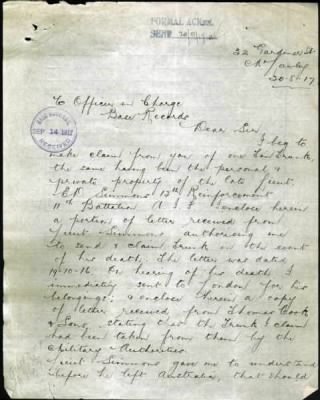 FORMAL ACKN.
SENT
32 Gardner St
20-8-17
BASE RECORDS
SEP 14 1917
RECEIVED
To Officer in Charge
Base Records
Dear Sir
I beg to
make claim from you of one Tan Trunk,
the same having been the personal &
private property of the late Lieut.
E.W. Simmons 13th Reinforcement
11th Battalion A.I.F. I enclose herein
a portion of letter received from
Lieut Simmons authorising me
to send & claim Trunk in the event
of his death. The letter was dated
19-10-16. On hearing of his death I
immediately sent to London for his
belongings, & enclose herein a copy
of letter received from Thomas Cook
& Sons, stating that the Trunk I claim
had been taken from them by the
Military Authorities
Lieut Simmons gave me to understand
before he left Australia, that should